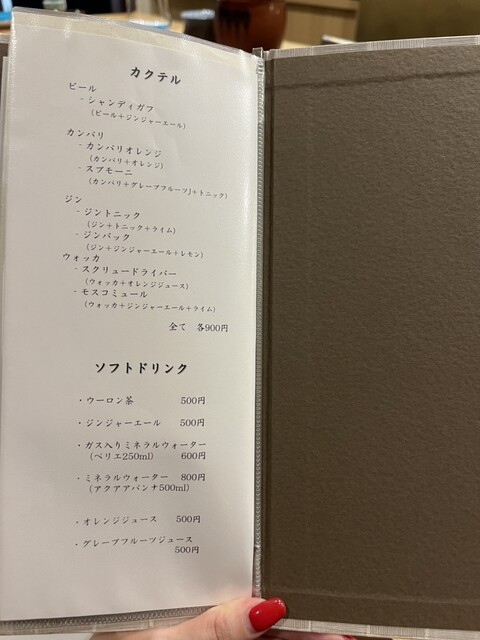 カクテル
ビール
・シャンディガフ
(ビール＋ジンジャーエール)
カンパリ
・カンパリオレンジ
(カンパリ＋オレンジ)
・スプモーニ
(カンパリ＋グレープフルーツJ＋トニック)
ジン
・ジントニック
(ジン＋トニック＋ライム)
・ジンバック
(ジン＋ジンジャーエール＋レモン)
ウォッカ
・スクリュードライバー
(ウォッカ＋オレンジジュース)
・モスコミュール
(ウォッカ＋ジンジャーエール＋ライム)
全て 各900円
ソフトドリンク
・ウーロン茶 500円
・ジンジャーエール 500円
・ガス入りミネラルウォーター
(ペリエ250ml) 600円
・ミネラルウォーター 800円
(アクアアパンナ500ml)
・オレンジジュース 500円
・グレープフルーツジュース
500円